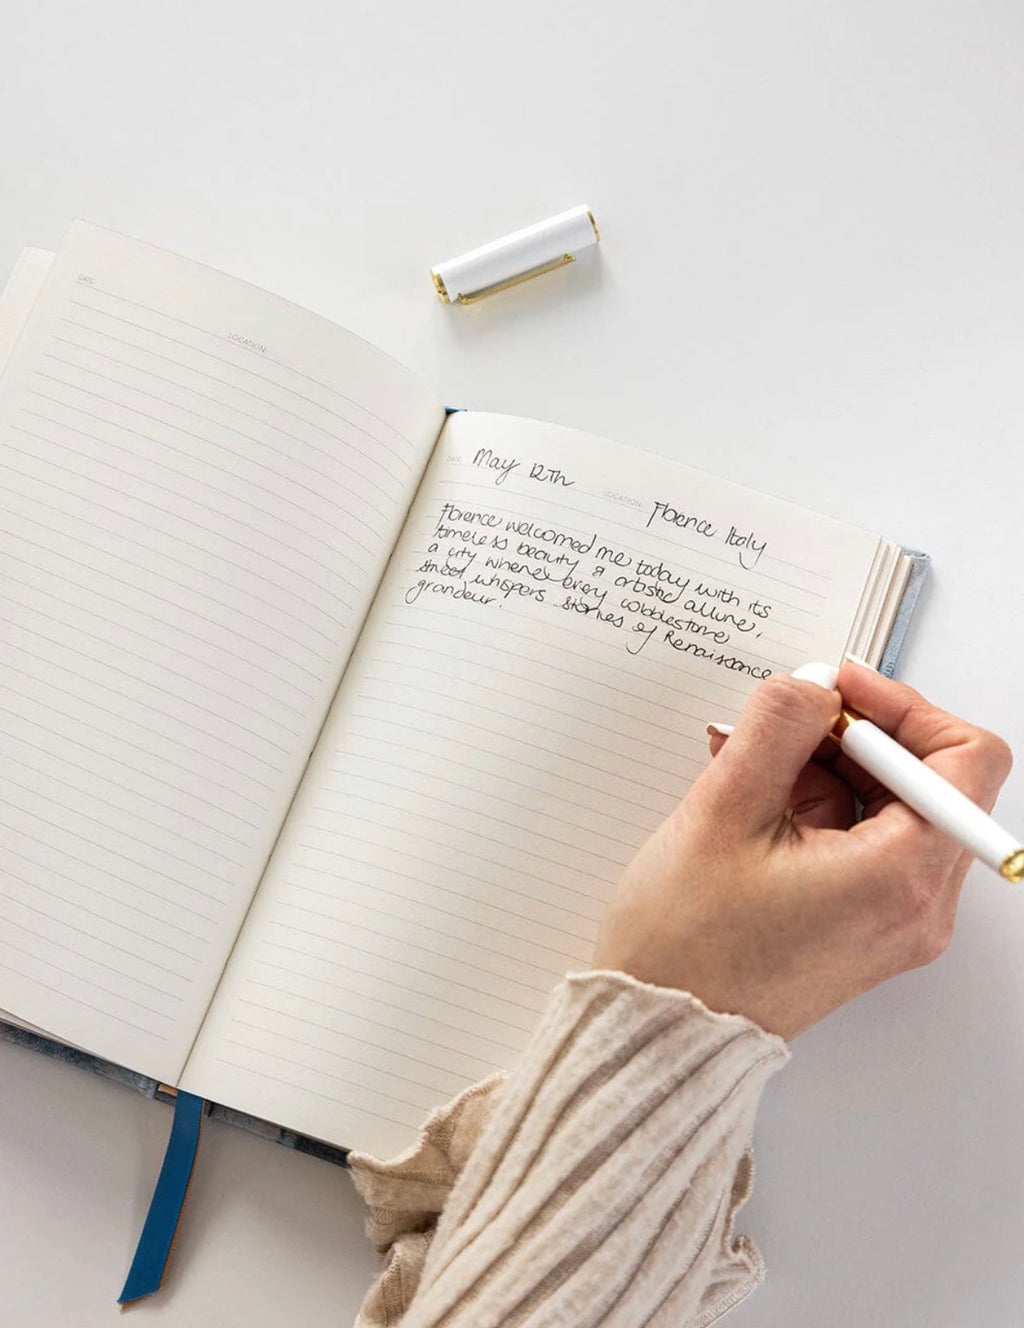 DATE:
LOCATION:
DATE: May 12Th LOCATION: Florence Italy
Florence welcomed me today with its
timeless beauty & artistic allure,
a city where every cobblestone
street whispers stories of Renaissance
grandeur.